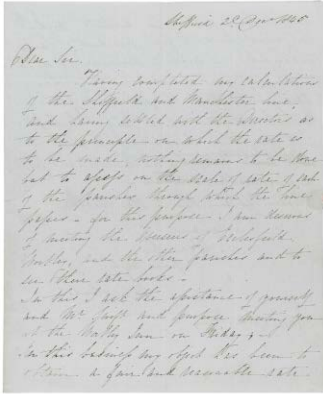 Sheffield 2d Decr 1845
Dear Sir.
Having completed my calculations
of the Sheffield and Manchester line,
and having settled with the directors as
to the principle on which the rate is
to be made, nothing remains to be done
but to assess on the scale of rate of each
of the parishes through which the line
passes - for this purpose I am desirous
of meeting the overseers of Ecclesfield
and the other parishes and to
see their rate books -
In this I ask the assistance of yourself
and Mr and purpose meeting you
at the Inn on Friday; -
In this business my object has been to
obtain a fair and reasonable rate